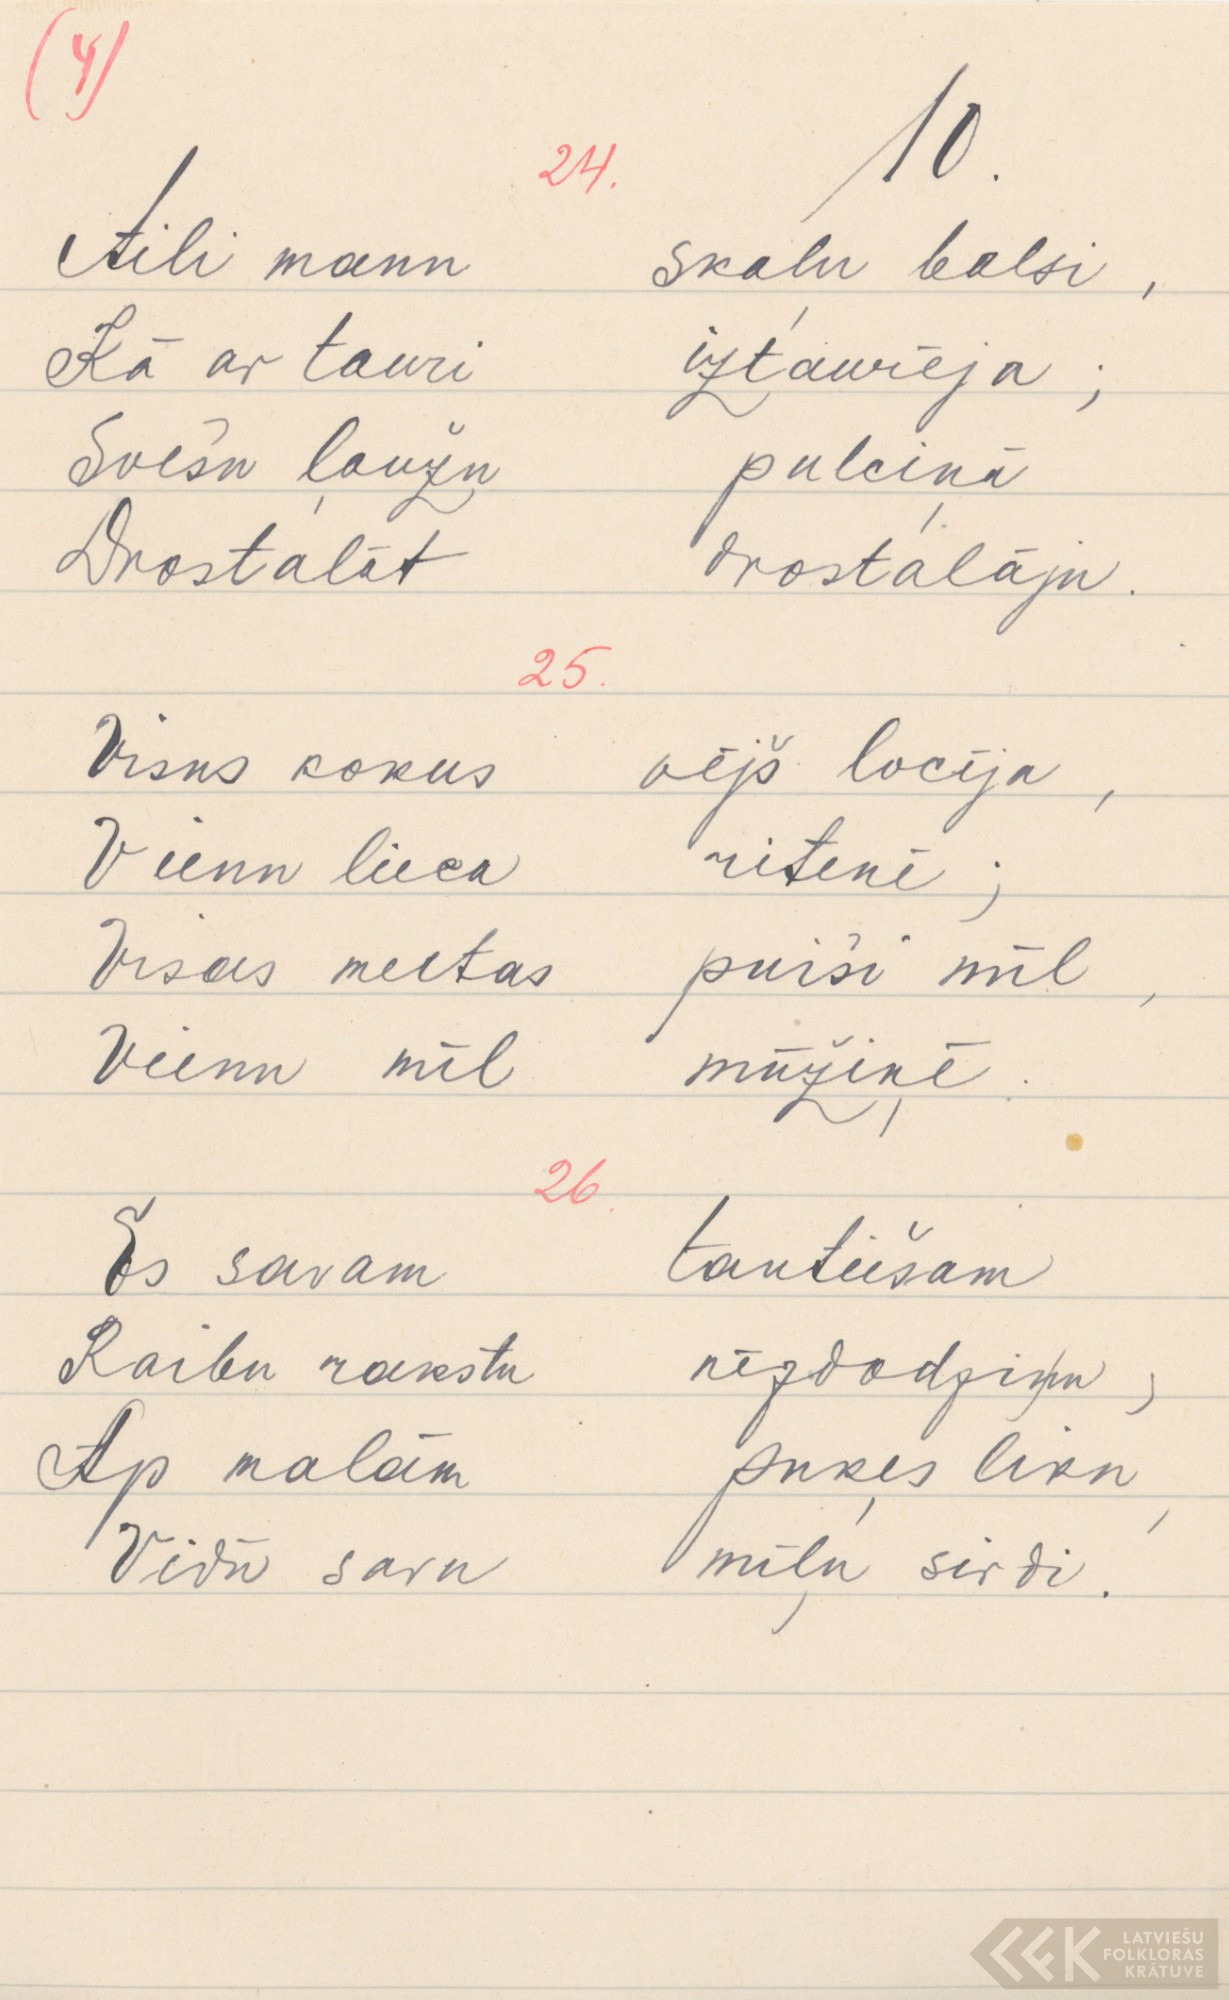 (4)
10.
24.
Aili manu skaļu balsi,
Kā ar tauri iztaurēja;
Svešu ļaužu pulciņā
Drostalāt drostalāju.
25.
Visus kokus vējš locīja,
Vienu lieca ritenī;
Visas meitas puiši mīl,
Vienu mīl mūžiņī.
26.
Es savam tautiešam
Raibu rakstu nēzdodziņu,
Ap malām puķes liku,
Vidū savu mīļu sirdi.
LATVIEŠU
FOLKLORAS
KRĀTUVE